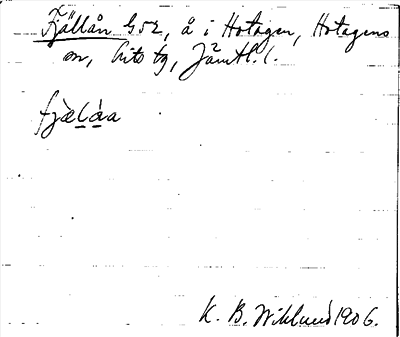 Fjällån G52, å i Hotagen, Hotagens
sn, Lits tg, Jämtl. l.
fjælåa
K. B. Wiklund 1906.